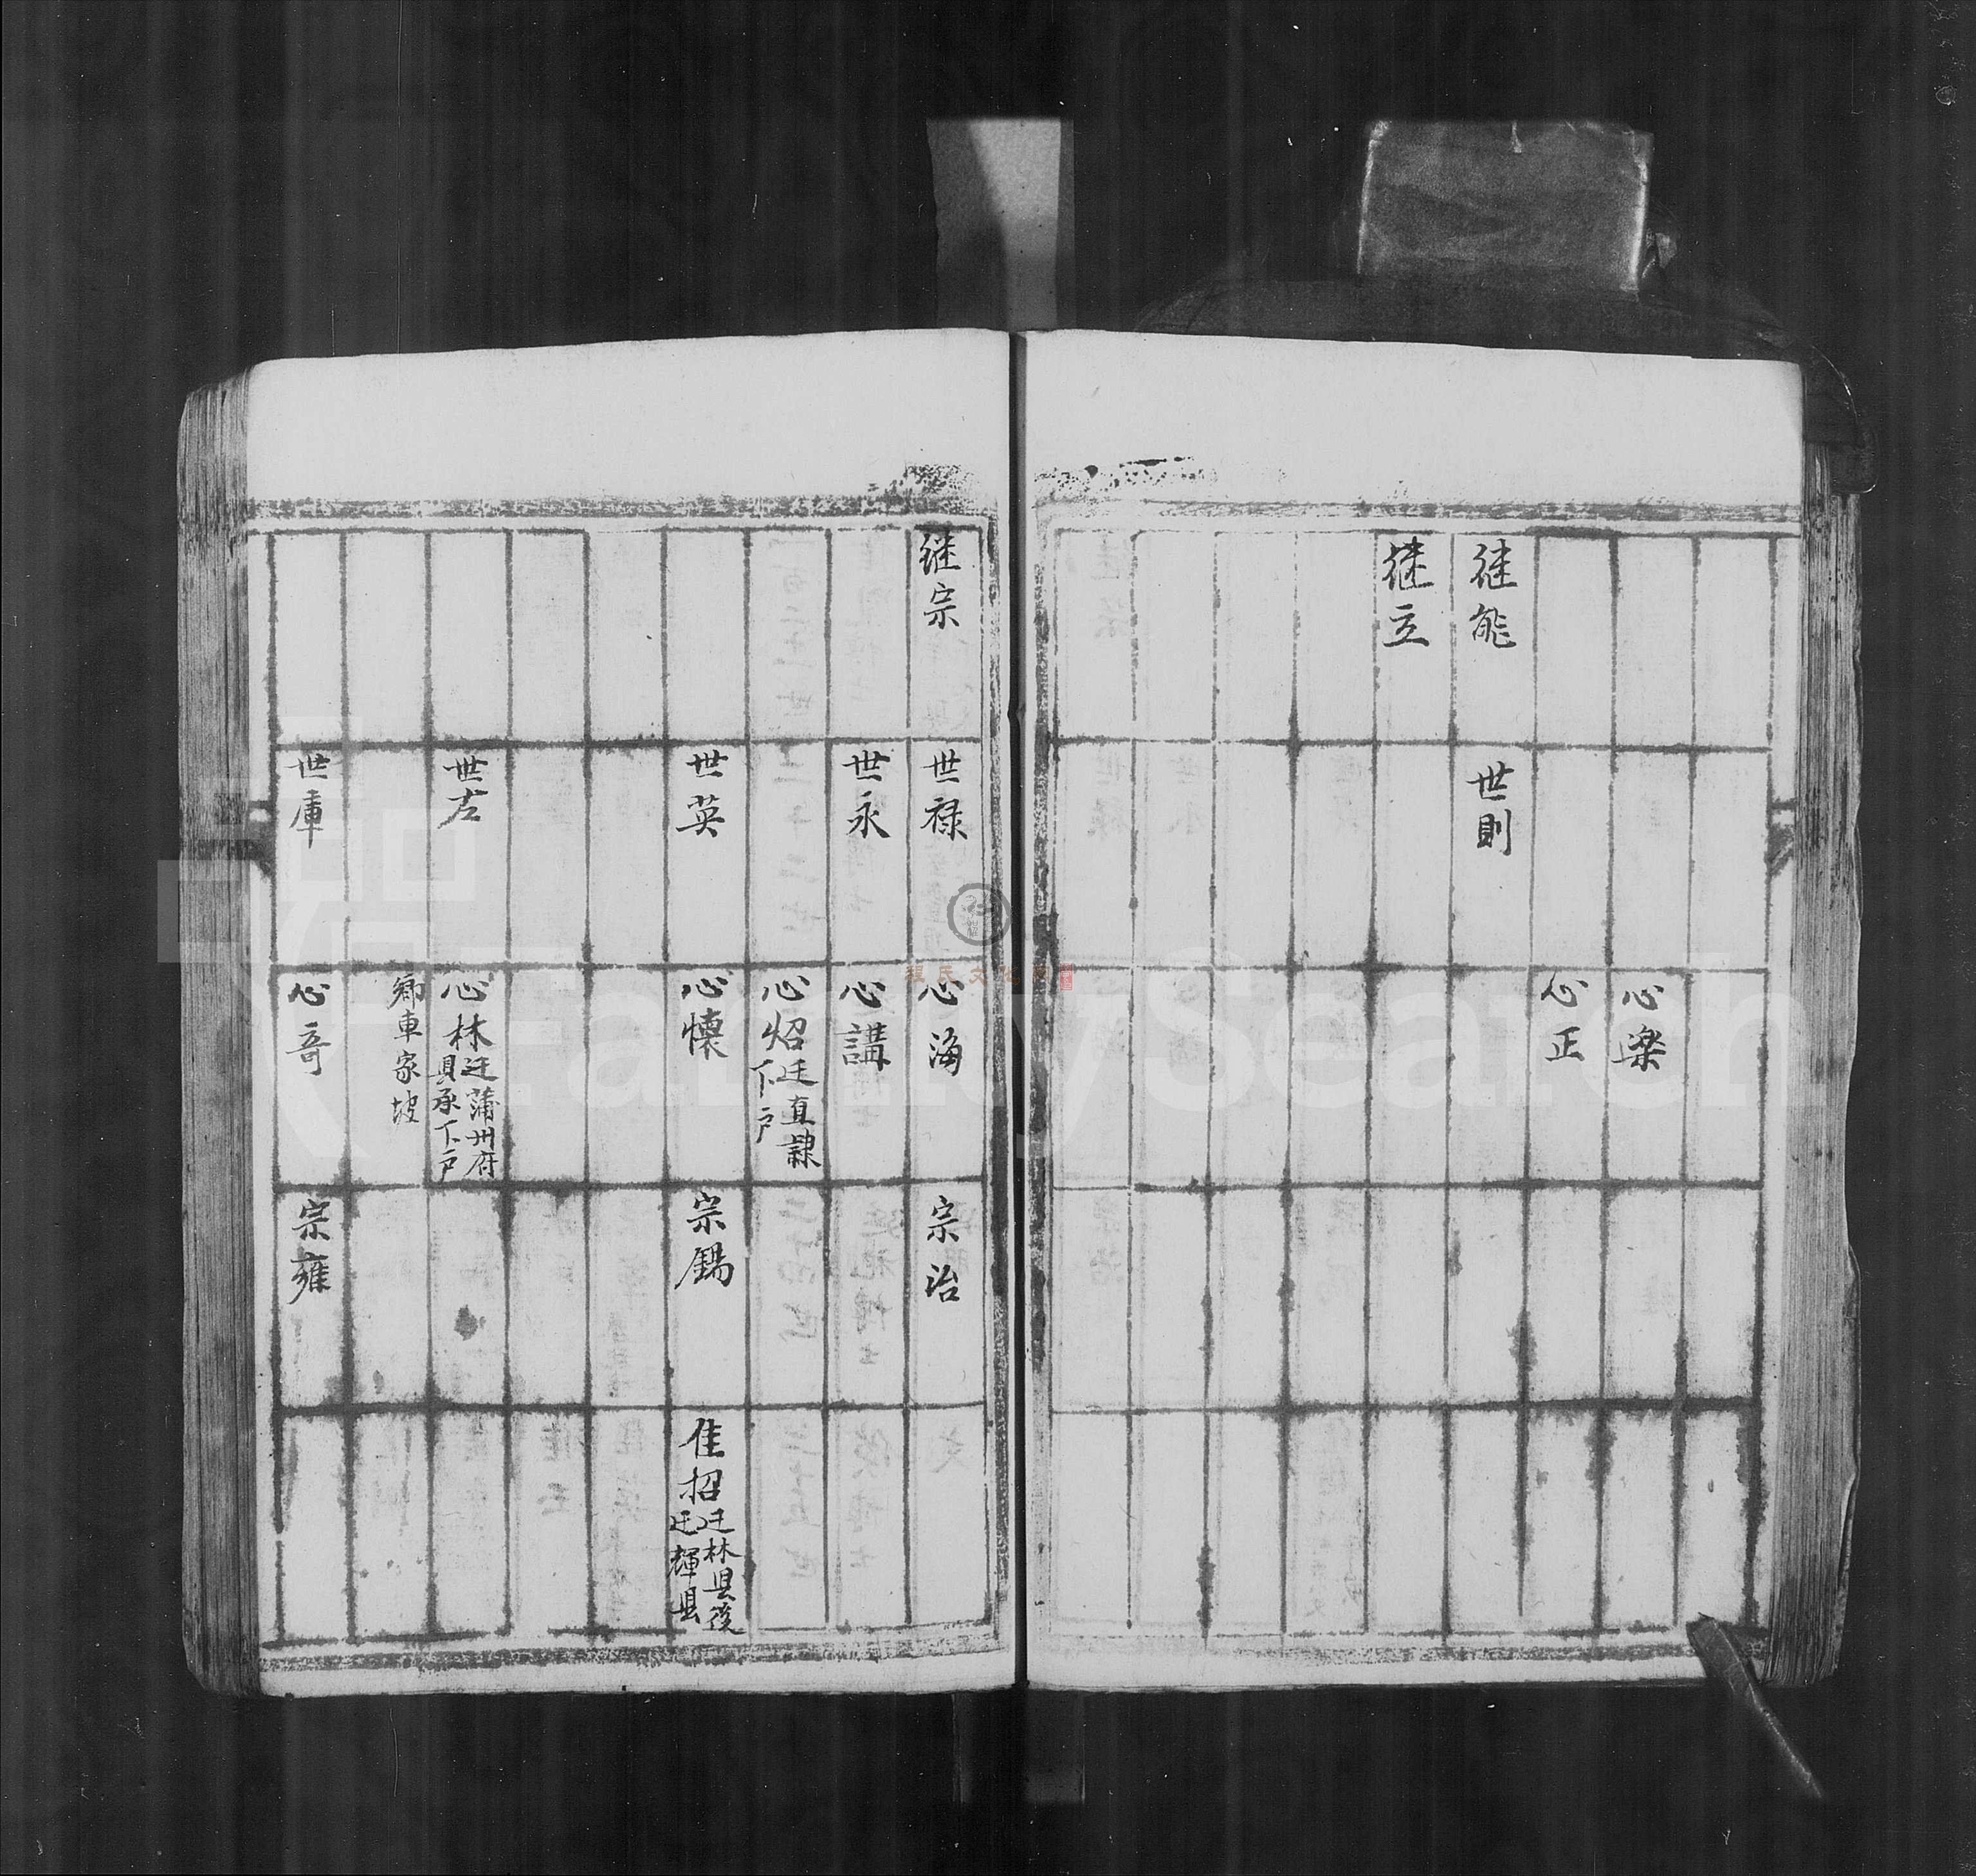 継能
継立
世則
心楽
心正
継宗
世禄
世永
世英
世左
世庫
心海
心講
心炤
迁直隷
下户
心懷
心林
迁蒲州府
具承下户
鄉車家坡
心竒
宗治
宗鍚
宗雍
佳招
迁林县後
迁輝县
程氏文化
FamilySearch